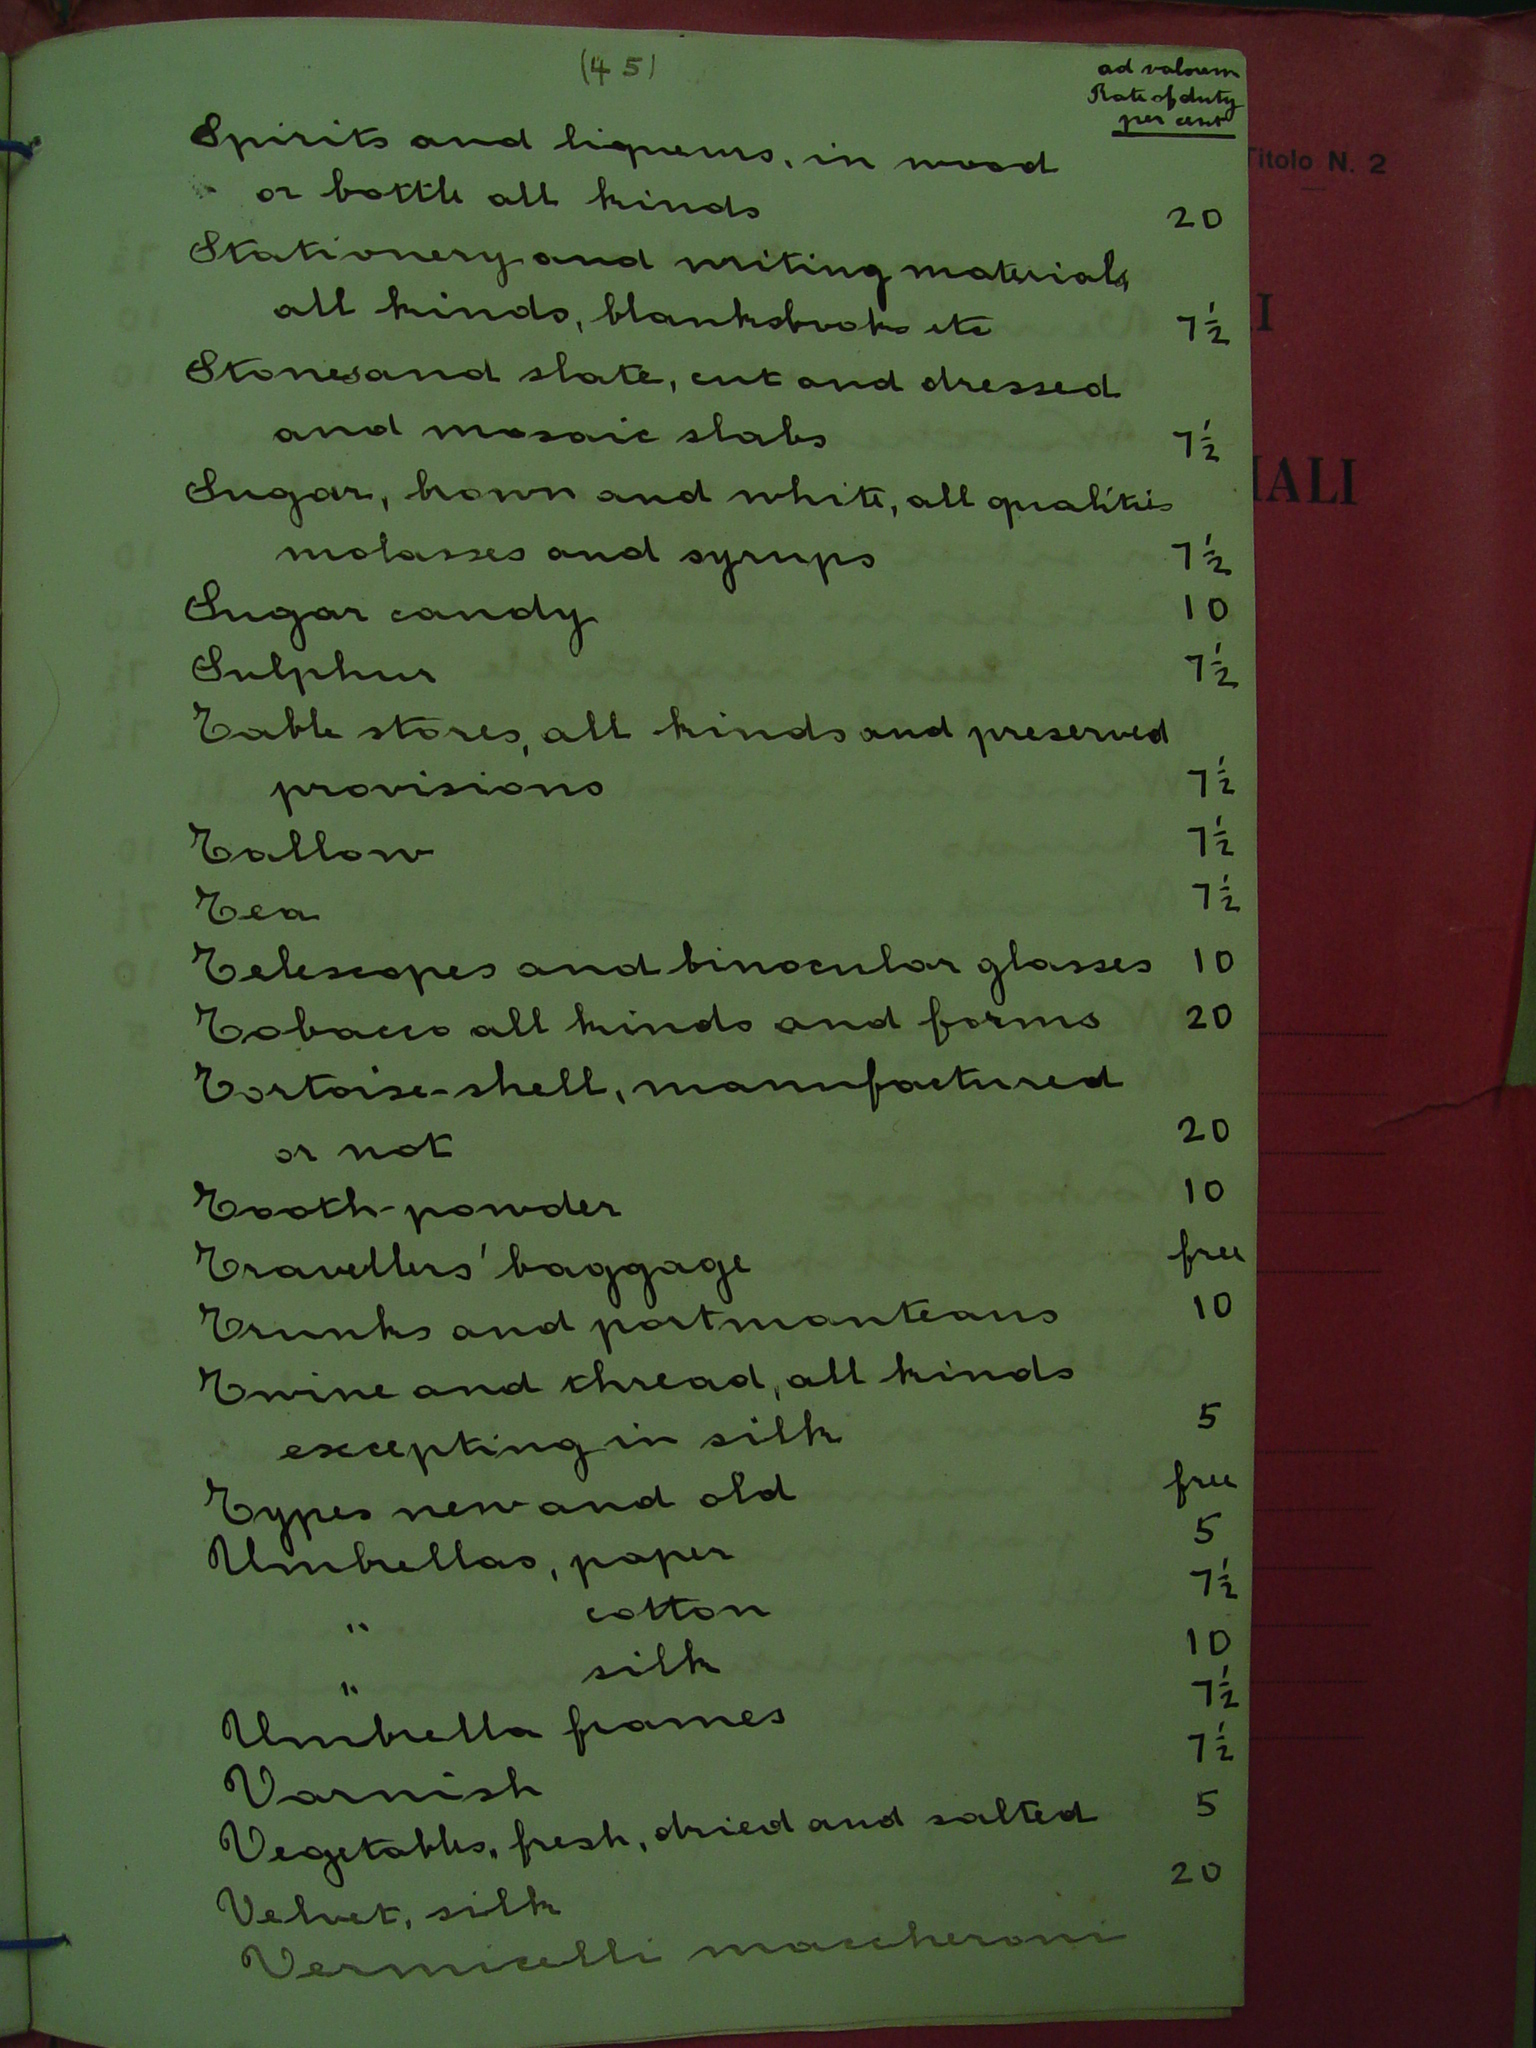 (45)
ad valorem
Rate of duty
per cent
Spirits and liqueurs, in wood
or bottle all kinds 20
Stationery and writing materials,
all kinds, blanksbooks etc 7½
Stones and slate, cut and dressed
and mosaic slabs 7½
Sugar, brown and white, all qualities
molasses and syrups 7½
Sugar candy 10
Sulphur 7½
Table stores, all kinds and preserved
provisions 7½
Tallow 7½
Tea 7½
Telescopes and binocular glasses 10
Tobacco all kinds and forms 20
Tortoise-shell, manufactured
or not 20
Tooth-powder 10
Travellers' baggage free
Trunks and portmanteaus 10
Twine and thread, all kinds
excepting in silk 5
Types new and old free
Umbrellas, paper 5
" cotton 7½
" silk 10
Umbrella frames 7½
Varnish 7½
Vegetables, fresh, dried and salted 5
Velvet, silk 20
Vermicelli maccheroni
Titolo N. 2